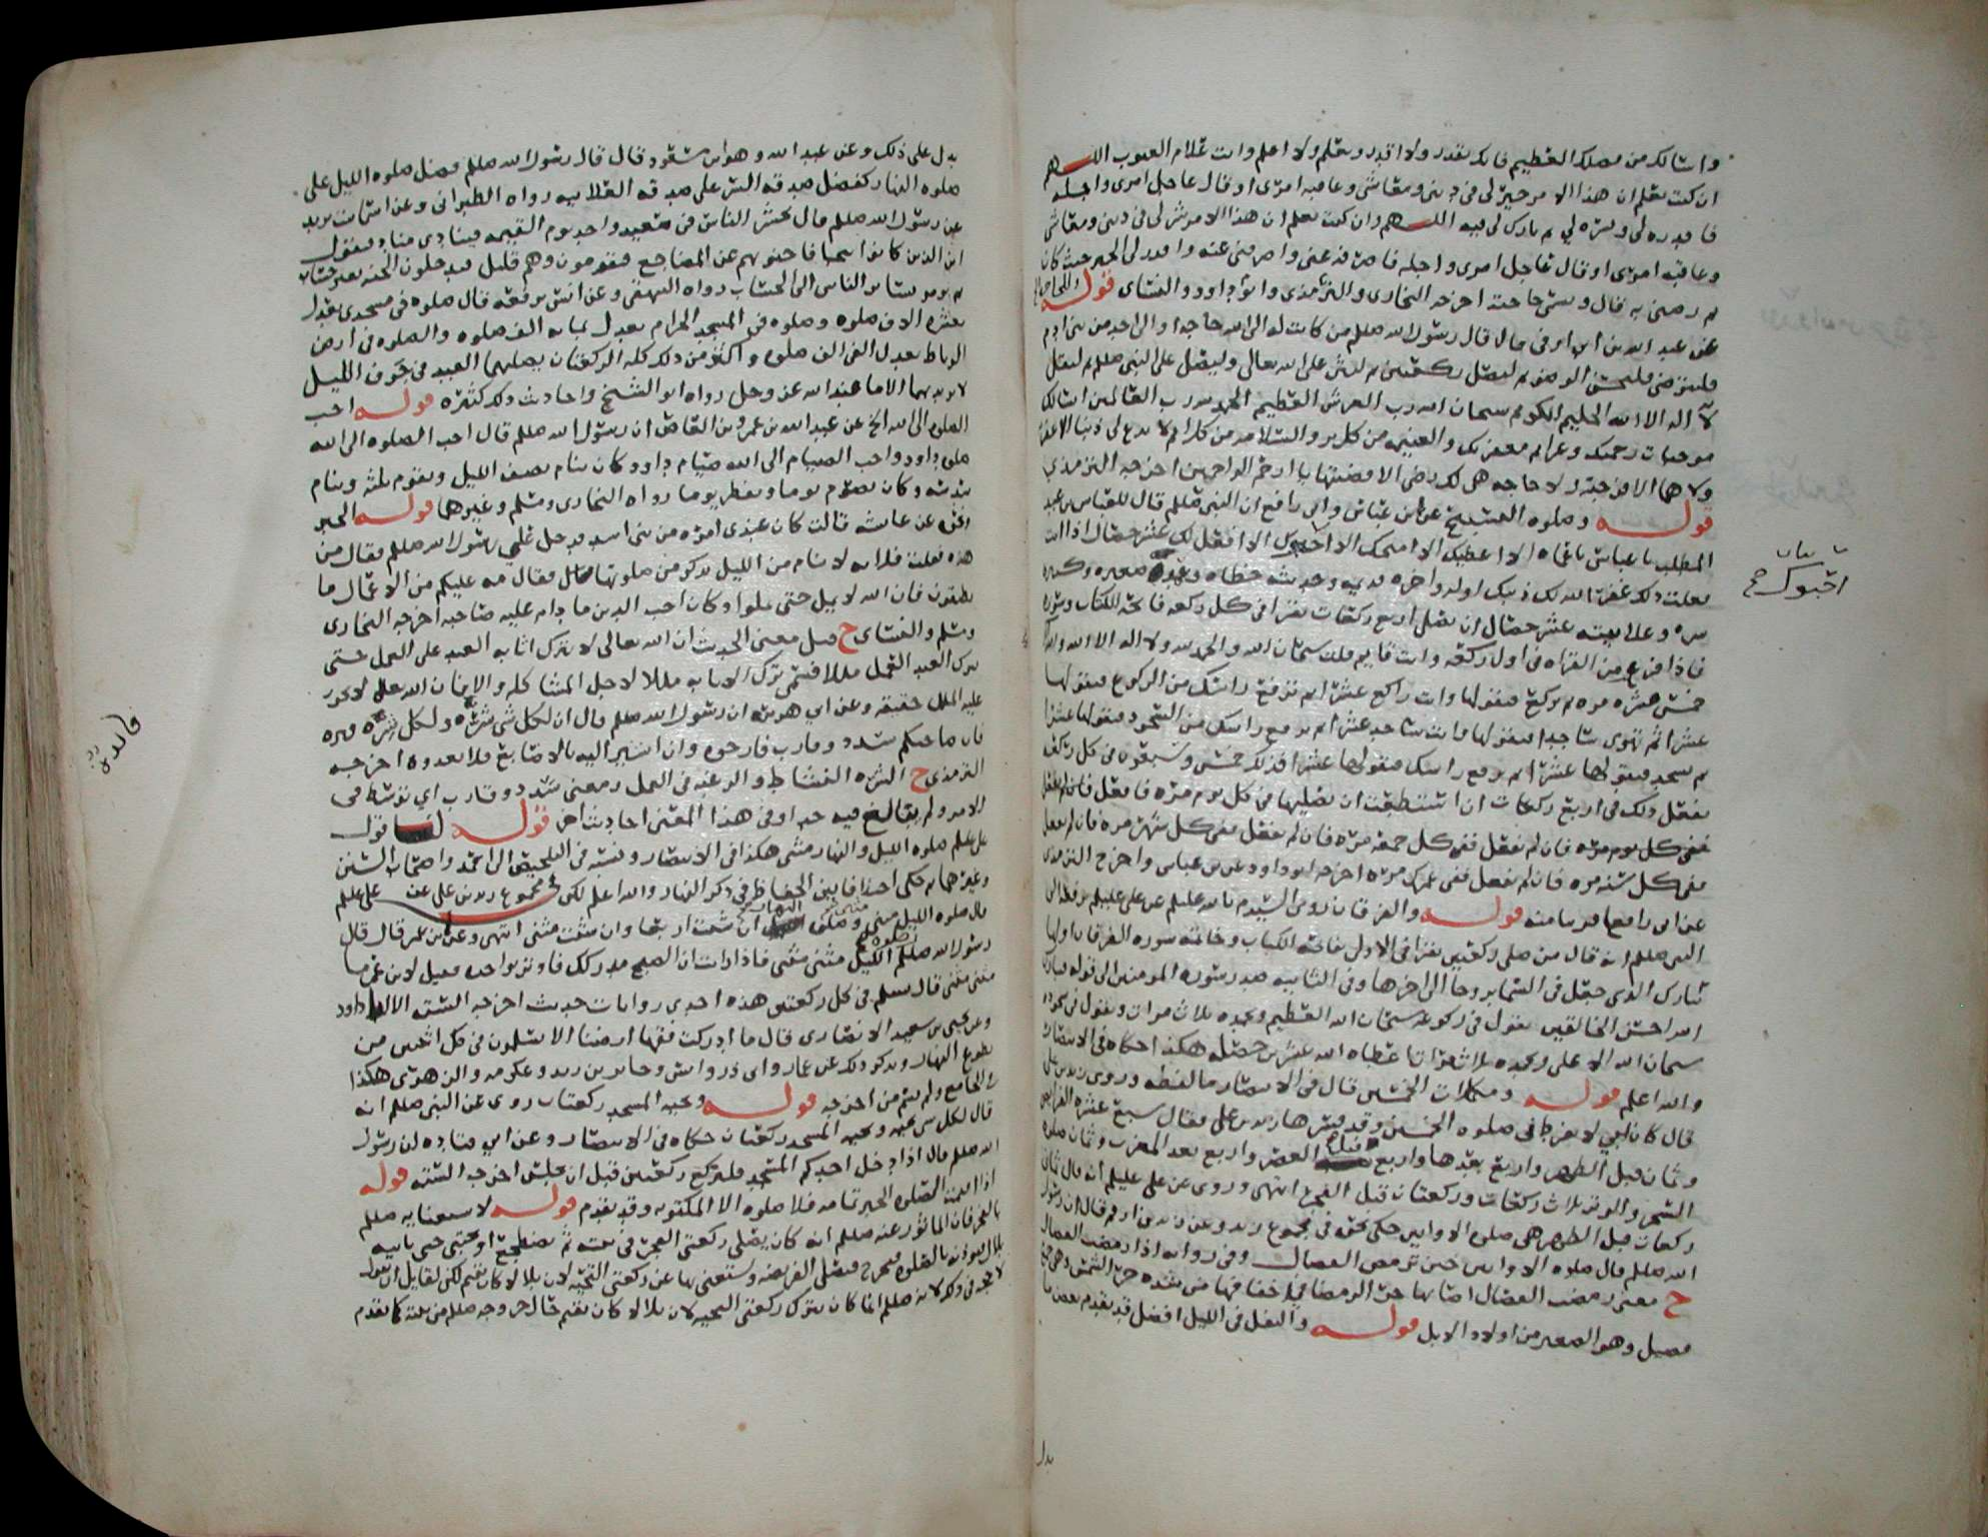 واسالك من فضلك العظيم فانك تقدر ولا اقدر وتعلم ولا اعلم وانت علام الغيوب اللهم
ان كنت تعلم ان هذا الامر خير لي في ديني ومعاشي وعاقبة امري او قال عاجل امري واجله
فاقدره لي ويسره لي ثم بارك لي فيه اللهم وان كنت تعلم ان هذا الامر شر لي في ديني ومعاشي
وعاقبة امري او قال عاجل امري واجله فاصرفه عني واصرفني عنه واقدر لي الخير حيث كان
ثم رضني به قال ويسمي حاجته اخرجه البخاري والترمذي وابو داود والنسائي قوله
عن عبد الله بن ابي اوفى قال قال رسول الله صللم من كانت له الى الله حاجة او الى احد من بني ادم
فليتوضى فليحسن الوضوء ثم ليصل ركعتين ثم ليثن على الله تعالى وليصل على النبي صللم ثم ليقل
لا اله الا الله الحليم الكريم سبحان الله رب العرش العظيم الحمد لله رب العالمين اسالك
موجبات رحمتك وعزائم مغفرتك والغنيمة من كل بر والسلامة من كل اثم لا تدع لي ذنبا الا غفرته
ولا هما الا فرجته ولا حاجة هي لك رضى الا قضيتها يا ارحم الراحمين اخرجه الترمذي
قوله وصلوة التسبيح عن ابن عباس وابي رافع ان النبي صللم قال للعباس بن عبد
المطلب يا عباس يا عماه الا اعطيك الا امنحك الا احبوك الا افعل لك عشر خصال اذا انت
فعلت ذلك غفر الله لك ذنبك اوله واخره قديمه وحديثه خطاه وعمده صغيره وكبيره
سره وعلانيته عشر خصال ان تصلي اربع ركعات تقرا في كل ركعة فاتحة الكتاب وسورة
فاذا فرغت من القراة في اول ركعة وانت قايم قلت سبحان الله والحمد لله ولا اله الا الله والله اكبر
خمس عشرة مرة ثم تركع فتقولها وانت راكع عشرا ثم ترفع راسك من الركوع فتقولها
عشرا ثم تهوي ساجدا فتقولها وانت ساجد عشرا ثم ترفع راسك من السجود فتقولها عشرا
ثم تسجد فتقولها عشرا ثم ترفع راسك فتقولها عشرا فذلك خمس وسبعون في كل ركعة
تفعل ذلك في اربع ركعات ان استطعت ان تصليها في كل يوم مرة فافعل فان لم تفعل
ففي كل جمعة مرة فان لم تفعل ففي كل شهر مرة فان لم تفعل
ففي كل سنة مرة فان لم تفعل ففي عمرك مرة اخرجه ابو داود عن ابن عباس واخرج الترمذي
عن ابي رافع قريبا منه قوله والفرقان روى السيد عن علي عليلم يرفعه الى
النبي صللم انه قال من صلى ركعتين يقرا في الاولى فاتحة الكتاب وخاتمة سورة الفرقان اولها
تبارك الذي جعل في السماء بروجا الى اخرها وفي الثانية صدر سورة المومنين الى قوله فتبارك
الله احسن الخالقين يقول في ركوعه سبحان الله العظيم وبحمده ثلاث مرات ويقول في سجوده
سبحان الله الاعلى وبحمده ثلاثا اعطاه الله عشرين خصلة هكذا حكاه في الانتصار
والله اعلم قوله ومكملات الخمسين قال في الانتصار ما لفظه وروى زيد بن علي
قال كان ابي لا يفرط في صلوة الخمسين وقد فسرها زيد بن علي فقال سبع عشرة الفرايض
وثمان قبل الظهر واربع بعدها واربع قبل العصر واربع بعد المغرب وثمان صلوة
السحر والوتر ثلاث ركعات وركعتان قبل الفجر انتهى وروى عن علي عليلم انه قال ثمان
ركعات قبل الظهر هي صلوة الاوابين حكى نحوه في مجموع زيد وعن زيد بن ارقم قال ان رسول
الله صللم قال صلوة الاوابين حين ترمض الفصال وفي رواية اذا رمضت الفصال
ح معنى رمضت الفصال اصابها حر الرمضا في اخفافها من شدة حر الشمس وهي جمع
فصيل وهو الصغير من اولاد الابل قوله والنفل في الليل افضل قد تقدم بعض ما
يدل
احبوك
يدل على ذلك وعن عبد الله وهو ابن مسعود قال قال رسول الله صللم فضل صلوة الليل على
صلوة النهار كفضل صدقة السر على صدقة العلانية رواه الطبراني وعن اسماء بنت يزيد
عن رسول الله صللم قال يحشر الناس في صعيد واحد يوم القيمة فينادي مناد فيقول
اين الذين كانوا تتجافا جنوبهم عن المضاجع فيقومون وهم قليل فيدخلون الجنة بغير حساب
ثم يومر بسائر الناس الى الحساب رواه البيهقي وعن انس يرفعه قال صلوة في مسجدي تعدل
بعشرة الاف صلوة وصلوة في المسجد الحرام تعدل بماية الف صلوة والصلوة في ارض
الرباط تعدل الفي الف صلوة واكثر من ذلك كله الركعتان يصليهما العبد في جوف الليل
لا يريد بهما الا ما عند الله عز وجل رواه ابو الشيخ واحاديث ذلك كثيرة قوله احب
الصلوة الى الله الخ عن عبد الله بن عمرو بن العاص ان رسول الله صللم قال احب الصلوة الى الله
صلوة داود واحب الصيام الى الله صيام داود كان ينام نصف الليل ويقوم ثلثه وينام
سدسه وكان يصوم يوما ويفطر يوما رواه البخاري ومسلم وغيرهما قوله الخبر
عن عائشة قالت كان عندي امراة من بني اسد فدخل علي رسول الله صللم فقال من
هذه قلت فلانة لا تنام من الليل تذكر من صلوتها فقال مه عليكم من الاعمال ما
تطيقون فان الله لا يمل حتى تملوا وكان احب الدين ما دام عليه صاحبه اخرجه البخاري
ومسلم والنسائي ح قيل معنى الحديث ان الله تعالى لا يترك اثابة العبد على العمل حتى
يترك العبد العمل مللا فسمى ترك الاثابة مللا لاجل المشاكلة والا فان الله لا يجوز
عليه الملل حقيقة وعن ابي هريرة ان رسول الله صللم قال ان لكل شي شرة ولكل شرة فترة
فان صاحبكم سدد وقارب فارجوه وان اشير اليه بالاصابع فلا تعدوه اخرجه
الترمذي ح الشرة النشاط والرغبة في العمل ومعنى سدد وقارب اي توسط في
الامر ولم يبالغ فيه وفي هذا المعنى احاديث اخر قوله
صلوة الليل والنهار مثنى هكذا في الانتصار ونسبه في التلخيص الى احمد واصحاب السنن
وغيرهما ثم حكى اختلافا بين الحفاظ في ذكر النهار والله اعلم لكن في مجموع زيد بن علي عن علي عليلم
قال صلوة الليل مثنى وصلوة النهار ان شئت اربعا وان شئت مثنى انتهى وعن ابن عمر قال قال
رسول الله صللم صلوة الليل مثنى مثنى فاذا رايت ان الصبح مدركك فاوتر بواحدة فقيل لابن عمر ما
مثنى مثنى قال تسلم في كل ركعتين هذه احدى روايات حديث اخرجه الستة الا ابا داود
وعن يحيى بن سعيد الانصاري قال ما ادركت فقها ارضنا الا يسلمون في كل اثنتين من
تطوع النهار ويذكر ذلك عن عمار وابي ذر وانس وجابر بن زيد وعكرمة والزهري هكذا
في الجامع ولم يسم من اخرجه قوله وتحية المسجد ركعتان روي عن النبي صللم انه
قال لكل شي تحية وتحية المسجد ركعتان حكاه في الانتصار وعن ابي قتادة ان رسول
الله صللم قال اذا دخل احدكم المسجد فليركع ركعتين قبل ان يجلس اخرجه الستة قوله
اذا اقيمت الصلوة الخبر تمامه فلا صلوة الا المكتوبة وقد تقدم قوله لاستغنايه صللم
بالفجر فان الماثور عنه صللم انه كان يصلي ركعتي الفجر في بيته ثم يضطجع او يحتبي حتى ياتيه
بلال يوذنه بالصلوة فيخرج فيصلي الفريضة ويستغني بها عن ركعتي التحية لان بلالا كان يقيم لكن لقايل ان يقول
لا حجة في ذلك لانه صللم انما كان يترك ركعتي التحية لان بلالا كان يقيم حال خروجه صللم من بيته كما تقدم
فائدة